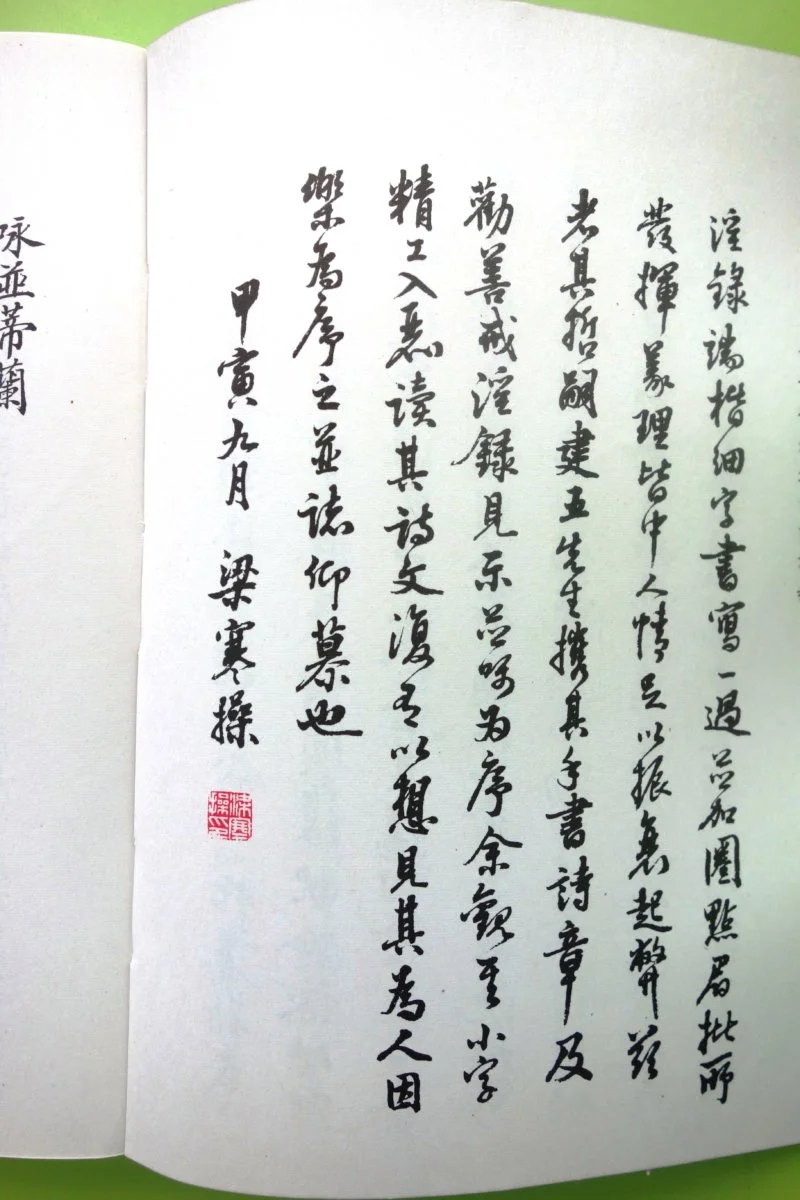 淫錄端楷細字書寫一過並加圈點眉批所
發揮義理皆中人情足以振衰起弊茲
者其哲嗣建五先生攜其手書詩章及
勸善戒淫錄見示並嘱为序余觀其小字
精工入讀其詩文復有以想見其為人因
樂為序之並誌仰慕也
甲寅九月 梁寒操
梁寒操印
咏並蒂蘭